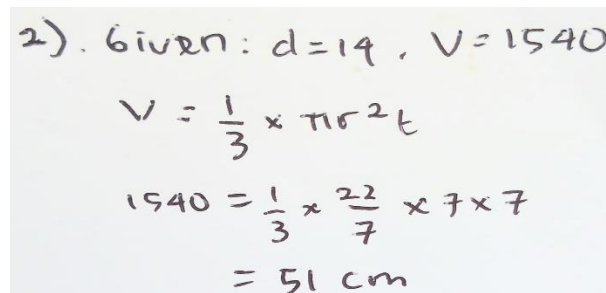 2). Given: d = 14, V = 1540
V = 1/3 × πr²t
1540 = 1/3 × 22/7 × 7 × 7
= 51 cm